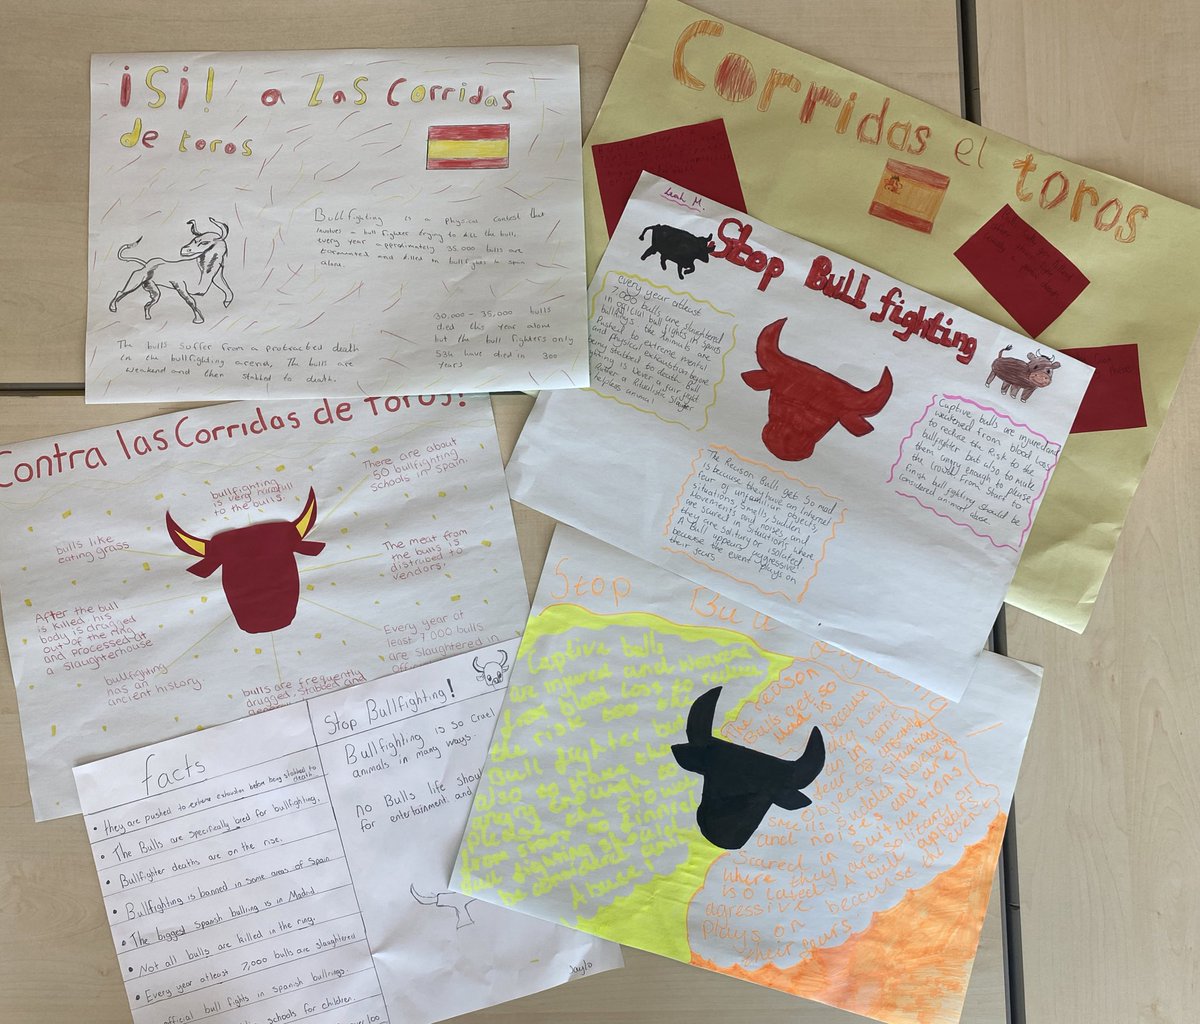 ¡Si! a Las Corridas
de toros
Bullfighting is a physical contest that
involves a bull fighter trying to kill the bull,
every year approximately 35,000 bulls are
tormented and killed in bullfights in spain
alone.
30,000 - 35,000 bulls
died this year alone
but the bull fighters only
534 have died in 300
years
The bulls suffer from a protracted death
in the bullfighting arena, The bulls are
weakend and then stabbed to death.
Corridas el toros
Leah M.
Stop Bull fighting
every year atleast
7,000 bulls are slaughtered
in official bull fights in Spains
bullrings. The animals are
Pushed to extreme mental
and physical before
being stabbed to death. Bull
fighting is never a fair fight
rather a Ritualistic Slaughter
helpless animal
Captive bulls are injured and
weakened from blood loss
to reduce the Risk to the
bullfighter but also to make
them angry enough to please
the crowd. From Start to
finish bull fighting should be
considered animal abuse.
The Reason Bulls get So mad
is because they have an internal
fear of unfamiliar objects,
situations, Smells, Sudden
movements and noises, and
are scared in Situations where
they are solitary or isolated.
A Bull appears aggressive
because the event plays on
their fears.
Contra las Corridas de toros!
bullfighting
is very harmfull
to the bulls.
There are about
50 bullfighting
schools in Spain.
bulls like
eating grass
The meat from
the bulls is
distrubed to
vendors.
After the bull
is killed his
body is dragged
out of the ring
and processed at
a slaughterhouse
Every year at
least 7 000 bulls
are slaughtered in
bullfighting
has an
ancient history.
bulls are frequently
drugged, stabbed and
facts
• they are pushed to extreme exhaustion before being stabbed to
death.
• The Bulls are specifically bred for bullfighting.
• Bullfighter deaths are on the rise.
• Bullfighting is banned in some areas of Spain
• The biggest Spanish bullring is in Madrid
• Not all bulls are killed in the ring.
• Every year atleast 7,000 bulls are slaughtered
official bull fights in Spanish bullrings.
schools for children.
Stop Bullfighting!
Bullfighting is so cruel
animals in many ways.
no Bulls life shou
for entertainment and
Jayto
Stop Bull
Captive bulls
are injured and weakened
from blood loss to reduce
the risk too the
Bull fighter but
also to make them
angry enough to
please the crowd
from start to finnish
bull fighting should
be considered animal
Abuse!
The reason
Bulls get so
Mad is
because
they have
an internal
fear of
objects, situations
smells, sudden movements
and noises and are
Scared in Situations
where they are solitary or
isolated. A bull appears
agressive because the event
plays on
their fears.